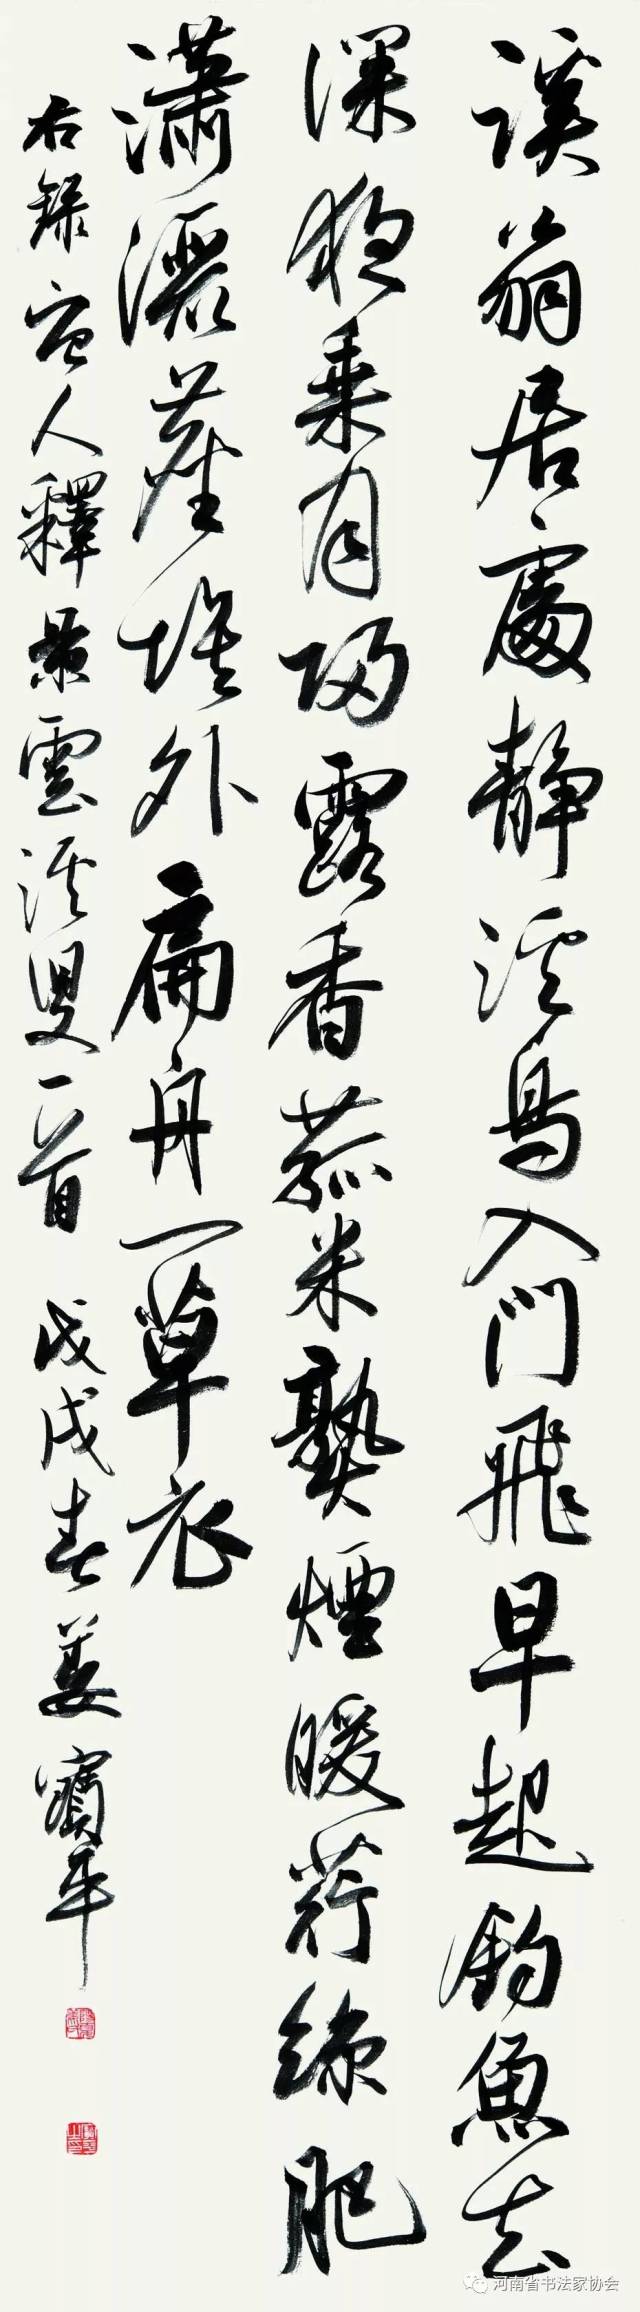 谿翁居處靜溪鳥入門飛早起釣魚去
深夜乘月歸露香菰米熟煙暖荇絲肥
瀟灑塵埃外扁舟一草衣
右錄唐人釋景雲溪叟一首 戊戌春姜寶平
河南省书法家协会